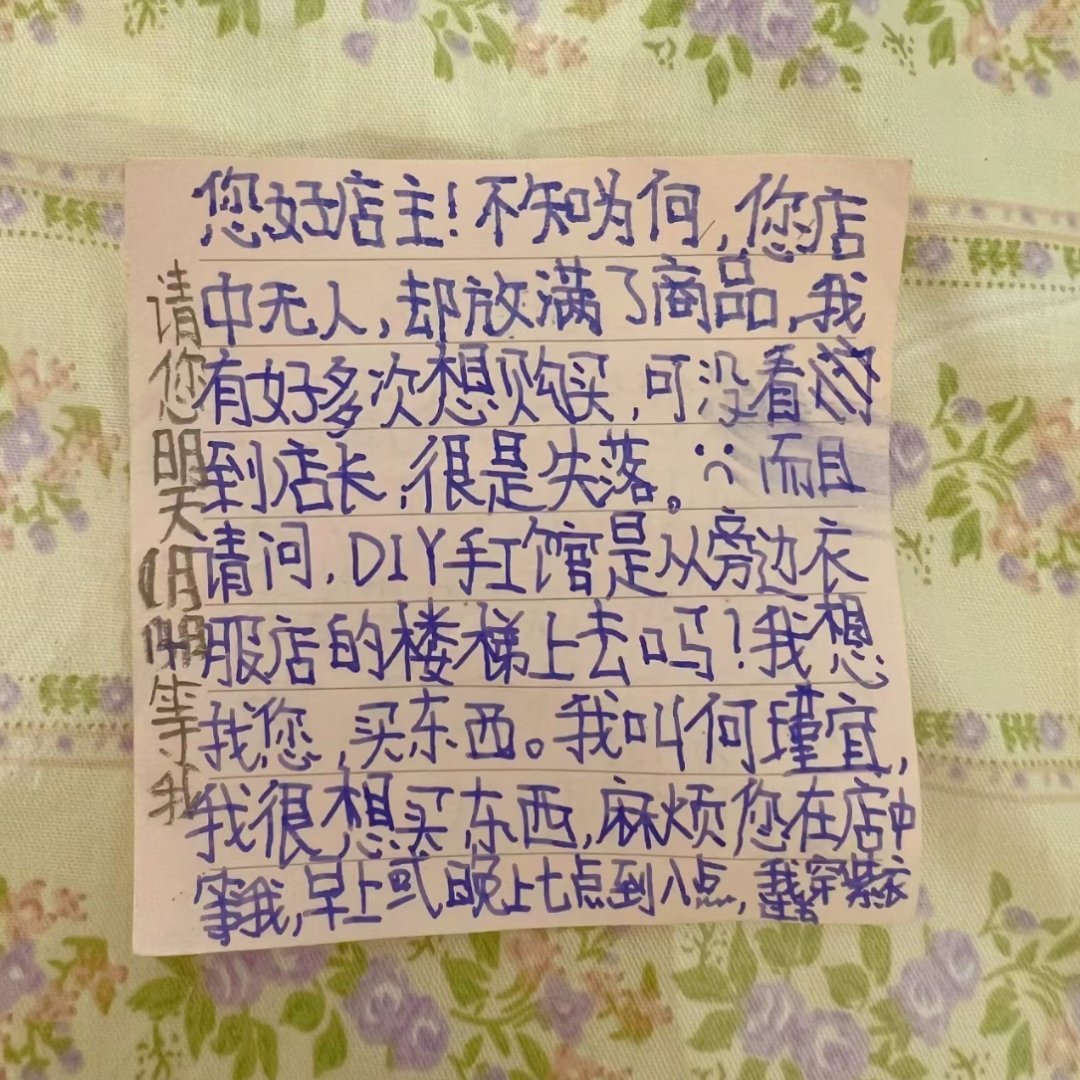 您好店主!不知为何,您店
中无人,却放满了商品,我
有好多次想购买,可没看
到店长,很是失落。:( 而且
请问,DIY手工馆是从旁边衣
服店的楼梯上去吗?我想
找您,买东西。我叫何瑾宜,
我很想买东西,麻烦您在店中
等我,早上或晚上七点到八点,我穿紫衣
请您明天 等我